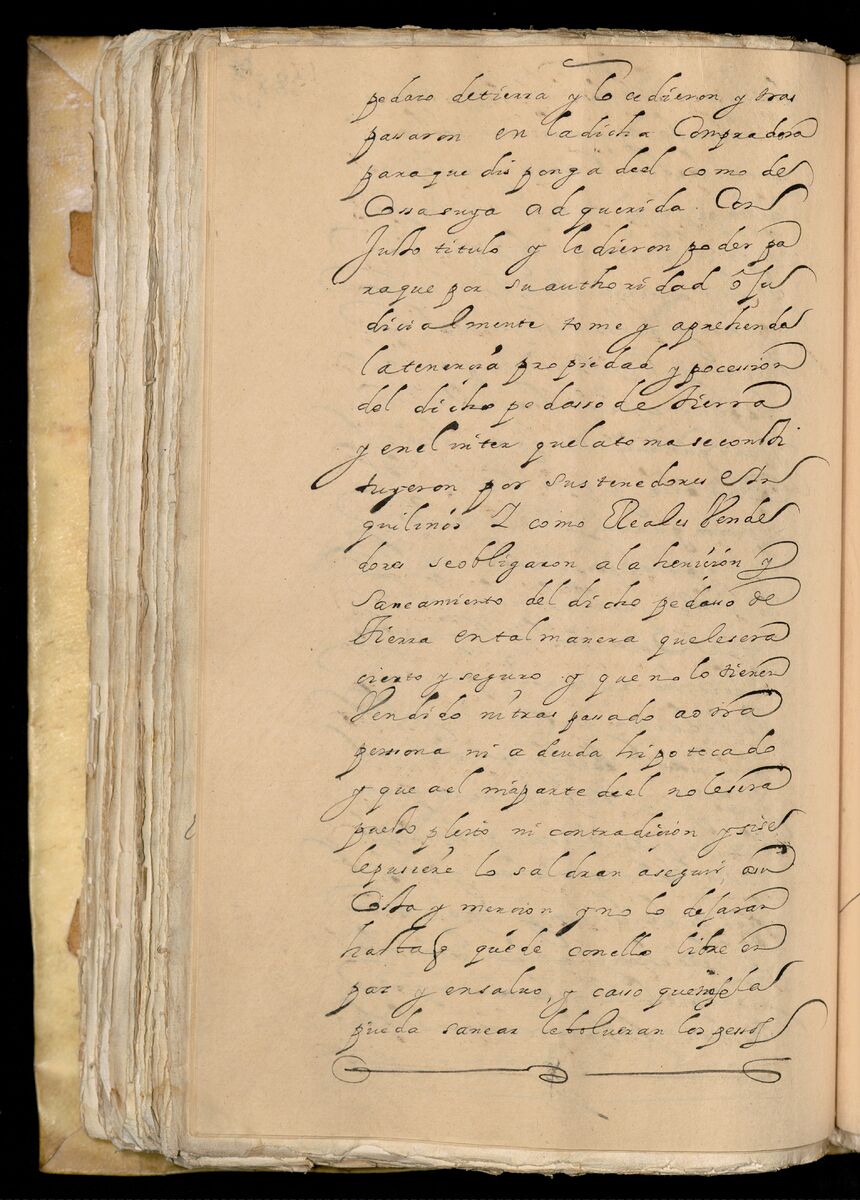 pedaso detierra y lo cedieron y tras
passaron en ladicha Compradora
paraque disponga deel como de
Cossa suya adquerida Con
Justo titulo y le dieron poder pa
raque por su authoridad ô Ju
dicialmente tome y aprehenda
latenencia propiedad y pocession
del dicho pedasso de tierra
y en el inter que la toma se consti
tuyeron por sus tenedores e In
quilinos Y como Reales Vende
dora se obligaron a la heviсión y
saneamiento del dicho pedasso de
tierra en tal manera que le sera
cierto y seguro y que no lo tienen
Vendido ni tras passado a otra
persona ni a deuda hipotecado
y que a el ni a parte deel no le sera
puesto pleito ni contradicion y si se
le pusiere lo saldran a seguir a su
Costa y mencion y no lo dejaran
hasta q quede con ello libre en
paz y en salvo, y casso que no se la
pueda sanear le bolueran los pessos